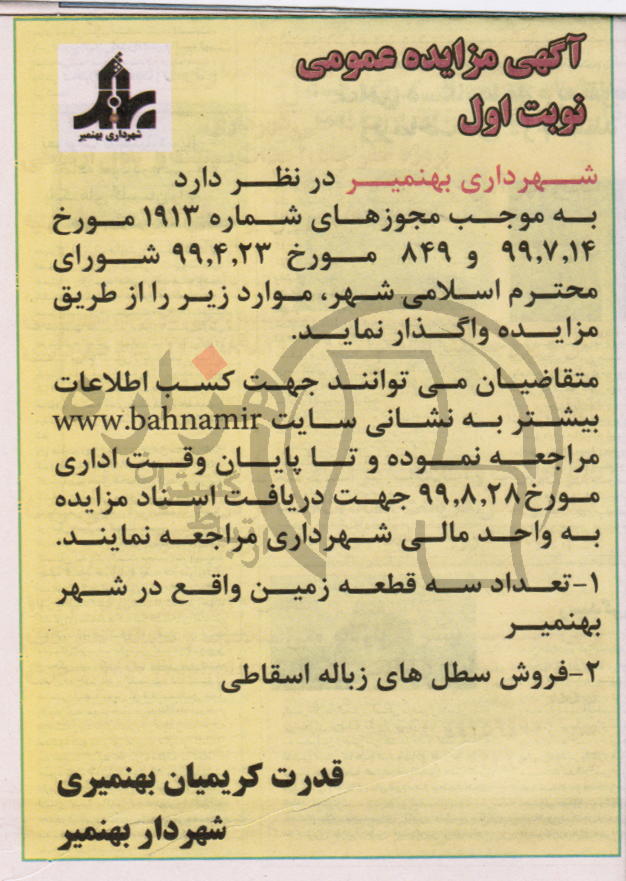 آگهی مزایده عمومی
نوبت اول
شهرداری بهنمیر
شهرداری بهنمیر در نظر دارد
به موجب مجوزهای شماره ۱۹۱۳ مورخ
۹۹,۷,۱۴ و ۸۴۹ مورخ ۹۹,۴,۲۳ شورای
محترم اسلامی شهر، موارد زیر را از طریق
مزایده واگذار نماید.
متقاضیان می توانند جهت کسب اطلاعات
بیشتر به نشانی سایت www.bahnamir
مراجعه نموده و تا پایان وقت اداری
مورخ ۹۹,۸,۲۸ جهت دریافت اسناد مزایده
به واحد مالی شهرداری مراجعه نمایند.
۱-تعداد سه قطعه زمین واقع در شهر
بهنمیر
۲-فروش سطل های زباله اسقاطی
قدرت کریمیان بهنمیری
شهردار بهنمیر
هزاره